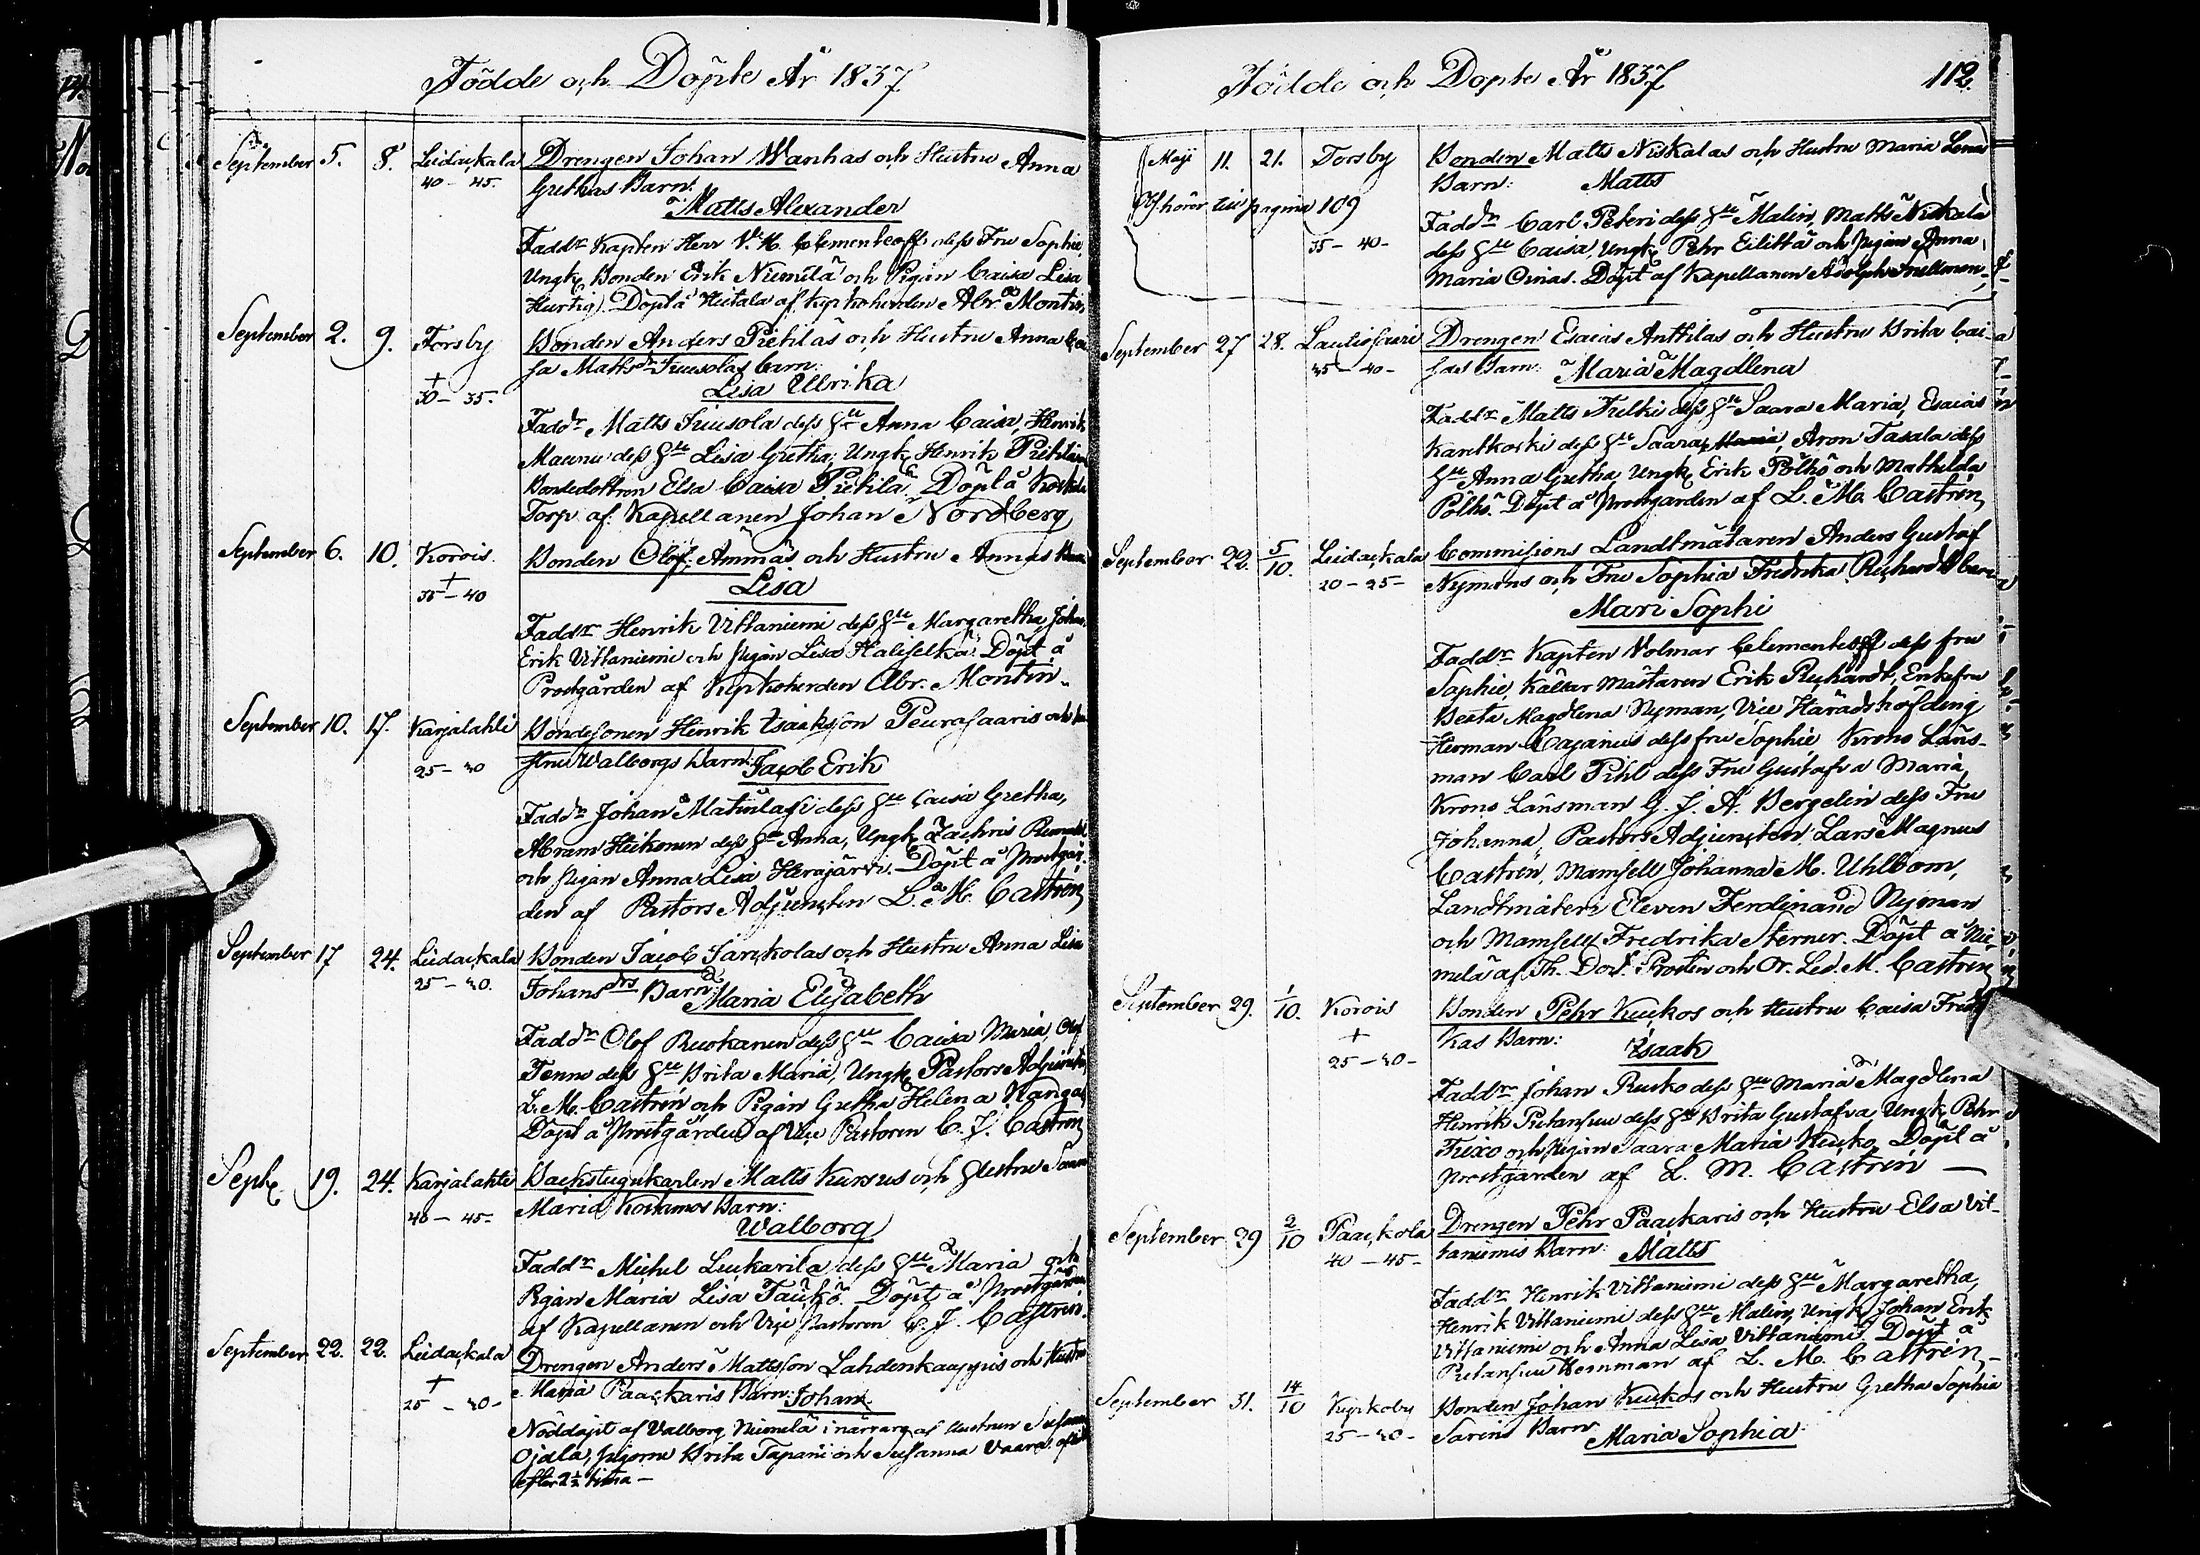 Födde och Döpte År 1837
September 5. 8. Leidackala Drengen Johan Wanhas och Hustru Anna
40 - 45. Grethas Barn:
Matts Alexander
Faddr Kapten Herr V. M. Clementeoff dess Fru Sophie,
Ungk Bonden Erik Niemilä och Pigan Caisa Lisa
Hurtig. Döpt å Heitala af Kyrkoherden Abr. Montin
September 2. 9. Torsby Bonden Anders Pietilas och Hustru Anna Cai
sa Mattsdr Juusolas barn:
+
30 - 35. Lisa Ulrika
Faddr Matts Juusola dess Hu Anna Caisa, Henrik
Maunu dess Hu Lisa Gretha, Ungk Henrik Pietilä
Bondedottren Elsa Caisa Pietilä. Döpt å
Torp af Kapellanen Johan Nordberg
September 6. 10. Korois Bonden Olof Ämmäs och Hustru Annas Barn
+
35 - 40 Lisa
Faddr Henrik Vittaniemi dess Hu Margaretha, Johan
Erik Vittaniemi och Pigan Lisa Haliselkä. Döpt å
Prostgården af Kyrkoherden Abr. Montin.
September 10. 17. Karjalahti Bondesonen Henrik Isaaksson Peurasaaris och Hu
25 - 30 stru Walborgs Barn: Jacob Erik
Faddr Johan Matinlassi dess Hu Caisa Gretha,
Abram Heikonen dess Hu Anna, Ungk Zachris
och Pigan Anna Lisa Herajärvi. Döpt å Prostgår
den af Pastors Adjuncten L. M. Castrén
September 17 24. Leidackala Bonden Jacob Jarckolas och Hustru Anna Lisa
25 - 30. Johans drs Barn: Maria Elisabeth
Faddr Olof Ruokanen dess Hu Caisa Maria, Olof
Tenno dess Hu Brita Maria, Ungk Pastors Adjunct
L. M. Castrén och Pigan Gretha Helena Kangas
Döpt å Prostgården af Vice Pastoren C. J. Castrén
Septr. 19. 24. Karjalahti Backstugukarlen Matts Kursus och Hustru Saara
40 - 45 - Maria Koskamos Barn:
Walborg
Faddr Michel Leuckarila dess Hu Maria och
Pigan Maria Lisa Täuckö. Döpt å Prostgården
af Kapellanen och Vice Pastoren C. J. Castrén.
September 22. 22. Leidackala Drengen Anders Mattsson Lahdenkauppis och Hustru
+
25 - 30 - Maria Paackaris Barn: Johan
Nöddöpt af Valborg Niemelä i närvaro af Hustrun Susanna
Ojala, pigorna Brita Tapani och Susanna Vaara
efter 2½ timma -
Födde och Döpte År 1837 112.
Maji 11. 21. Torsby Bonden Matts Niskalas och Hustru Maria Lenas
Barn: Matts
Hörer till pagina 109
35 - 40 -
Faddr Carl Peteri dess Hu Malin, Matts Niskala
dess Hu Caisa, Ungk Pehr Eilittä och Pigan Anna
Maria Oinas. Döpt af Kapellanen Adolph Snellman
September 27 28. Lautiosaari Drengen Esaias Anttilas och Hustru Brita Cai-
35 - 40 - sas Barn: Maria Magdlena
Faddr Matts Julki dess Hu Saara Maria, Esaias
Karttkoski dess Hu Saara, Aron Tasala dess
Hu Anna Gretha, Ungk Erik Pölhö och Mathilda
Pölhö. Döpt å Prostgården af L. M. Castrén
September 22. 5/10. Leidackala Commissions Landtmätaren Anders Gustaf
20 - 25 - Nymans och Fru Sophia Fredrika Richardts barn
Mari Sophi
Faddr Kapten Volmar Clementeoff dess fru
Sophie, Källar Mästaren Erik Richardt, Enkefru
Beata Magdlena Nyman, Vice Häradshöfding
Herman Cajanus dess fru Sophie Krono Läns-
man Carl Pihl dess Fru Gustafva Maria,
Krono Länsman G. J. A. Bergelin dess Fru
Johanna, Pastors Adjuncten Lars Magnus
Castrén, Mamsell Johanna M. Uhlbom,
Landtmäteri Eleven Ferdinand Nyman
och Mamsell Fredrika Sterner. Döpt å Nie-
melä af Th. Dor. Prosten och Or. Led. M. Castrén
September 29. 1/10. Korois Bonden Pehr Kuckos och Hustru Caisa Fredri
+
25 - 30 - kas Barn: Isaak
Faddr Johan Ruoko dess Hu Maria Magdlena
Henrik Pietansuu dess Hu Brita Gustafva Ungk Pehr
Frixo och Pigan Saara Maria Kucko. Döpt å
Prostgården af L. M. Castrén -
September 29 2/10 Paackola Drengen Pehr Paackaris och Hustru Elsa Vit-
40 - 45 - taniemis Barn: Matts
Faddr Henrik Vittaniemi dess Hu Margaretha,
Henrik Vittaniemi dess Hu Malin, Ungk Johan Erik
Vittaniemi och Anna Lisa Vittaniemi. Döpt å
Pietansuu Hemman af L. M. Castrén -
September 31. 14/10 Kyrkoby Bonden Johan Kuckos och Hustru Gretha Sophia
25 - 30 - Sarens Barn Maria Sophia